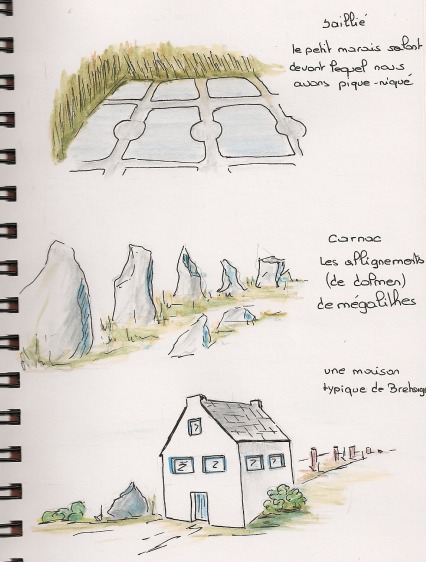 saillié
le petit marais salant
devant lequel nous
avons pique-niqué
Carnac
Les allignements
(de dolmen)
de mégalithes
une maison
typique de Bretagne